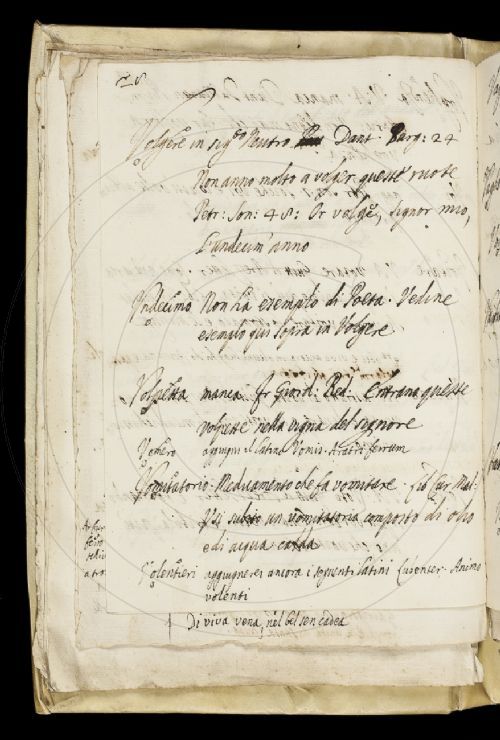 Volgere in sig.to Neutro Dant. Purg: 24
Non anno molto a volger queste ruote
Petr: Son: 48: Or volge, signor mio,
l'undecim' anno
Undecimo Non ha esemplo di Poeta. Vedine
esemplo qui sopra in Volgere
Volpetta manca Fr Giord: Red. Entrano queste
volpette nella vigna del signore
Vomero aggiugni il latino Vomis. Aratri ferrum
Vomitatorio. Medicamento che fa vomitare.
Usi subito un vomitatorio composto di olio
e di acqua calda
Volentieri aggiugnerei ancora i seguenti latini Lubenter. Animo
volenti
Di viva vena, nel bel sen cadea